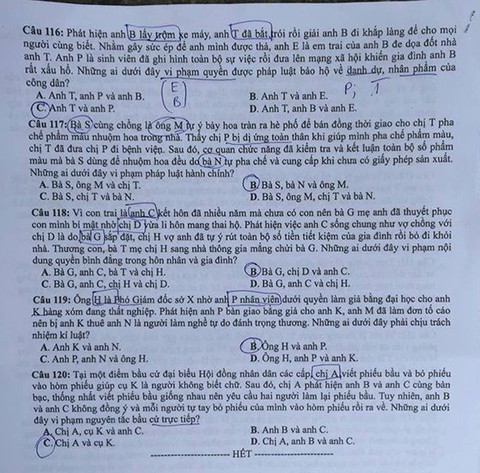 Câu 116: Phát hiện anh B lấy trộm xe máy, anh T đã bắt, trói rồi giải anh B đi khắp làng để cho mọi
người cùng biết. Nhằm gây sức ép để anh mình được thả, anh E là em trai của anh B đe dọa đốt nhà
anh T. Anh P là sinh viên đã ghi hình toàn bộ sự việc rồi đưa lên mạng xã hội khiến gia đình anh B
rất xấu hổ. Những ai dưới đây vi phạm quyền được pháp luật bảo hộ về danh dự, nhân phẩm của
công dân?
E
B
P, T
A. Anh T, anh P và anh B. B. Anh T và anh E.
C. Anh T và anh P. D. Anh T, anh B và anh E.
Câu 117: Bà S cùng chồng là ông M tự ý bày hoa tràn ra hè phố để bán đồng thời giao cho chị T pha
chế phẩm màu nhuộm hoa trong nhà. Thấy chị P bị dị ứng toàn thân khi giúp mình pha chế phẩm màu,
chị T đã đưa chị P đi bệnh viện. Sau đó, cơ quan chức năng đã kiểm tra và kết luận toàn bộ số phẩm
màu mà bà S dùng để nhuộm hoa đều do bà N tự pha chế và cung cấp khi chưa có giấy phép sản xuất.
Những ai dưới đây vi phạm pháp luật hành chính?
A. Bà S, ông M và chị T. B. Bà S, bà N và ông M.
C. Bà S, chị T và bà N. D. Bà S, ông M, chị T và bà N.
Câu 118: Vì con trai là anh C kết hôn đã nhiều năm mà chưa có con nên bà G mẹ anh đã thuyết phục
con mình bí mật nhờ chị D vừa li hôn mang thai hộ. Phát hiện việc anh C sống chung như vợ chồng với
chị D là do bà G sắp đặt, chị H vợ anh đã tự ý rút toàn bộ số tiền tiết kiệm của gia đình rồi bỏ đi khỏi
nhà. Thương con, bà T mẹ chị H sang nhà thông gia mắng chửi bà G. Những ai dưới đây vi phạm nội
dung quyền bình đẳng trong hôn nhân và gia đình?
A. Bà G, anh C, bà T và chị H. B. Bà G, chị D và anh C.
C. Bà G, anh C, chị H và chị D. D. Bà G, anh C và chị H.
Câu 119: Ông H là Phó Giám đốc sở X nhờ anh P nhân viên dưới quyền làm giả bằng đại học cho anh
K hàng xóm đang thất nghiệp. Phát hiện anh P bàn giao bằng giả cho anh K, anh M đã làm đơn tố cáo
nên bị anh K thuê anh N là người làm nghề tự do đánh trọng thương. Những ai dưới đây phải chịu trách
nhiệm kỉ luật?
A. Anh K và anh N. B. Ông H và anh P.
C. Anh P, anh N và ông H. D. Ông H, anh P và anh K.
Câu 120: Tại một điểm bầu cử đại biểu Hội đồng nhân dân các cấp, chị A viết phiếu bầu và bỏ phiếu
vào hòm phiếu giúp cụ K là người không biết chữ. Sau đó, chị A phát hiện anh B và anh C cùng bàn
bạc, thống nhất viết phiếu bầu giống nhau nên yêu cầu hai người làm lại phiếu bầu. Tuy nhiên, anh B
và anh C không đồng ý và mỗi người tự tay bỏ phiếu của mình vào hòm phiếu rồi ra về. Những ai dưới
đây vi phạm nguyên tắc bầu cử trực tiếp?
A. Chị A, cụ K và anh C. B. Anh B và anh C.
C. Chị A và cụ K. D. Chị A, anh B và anh C.
HẾT